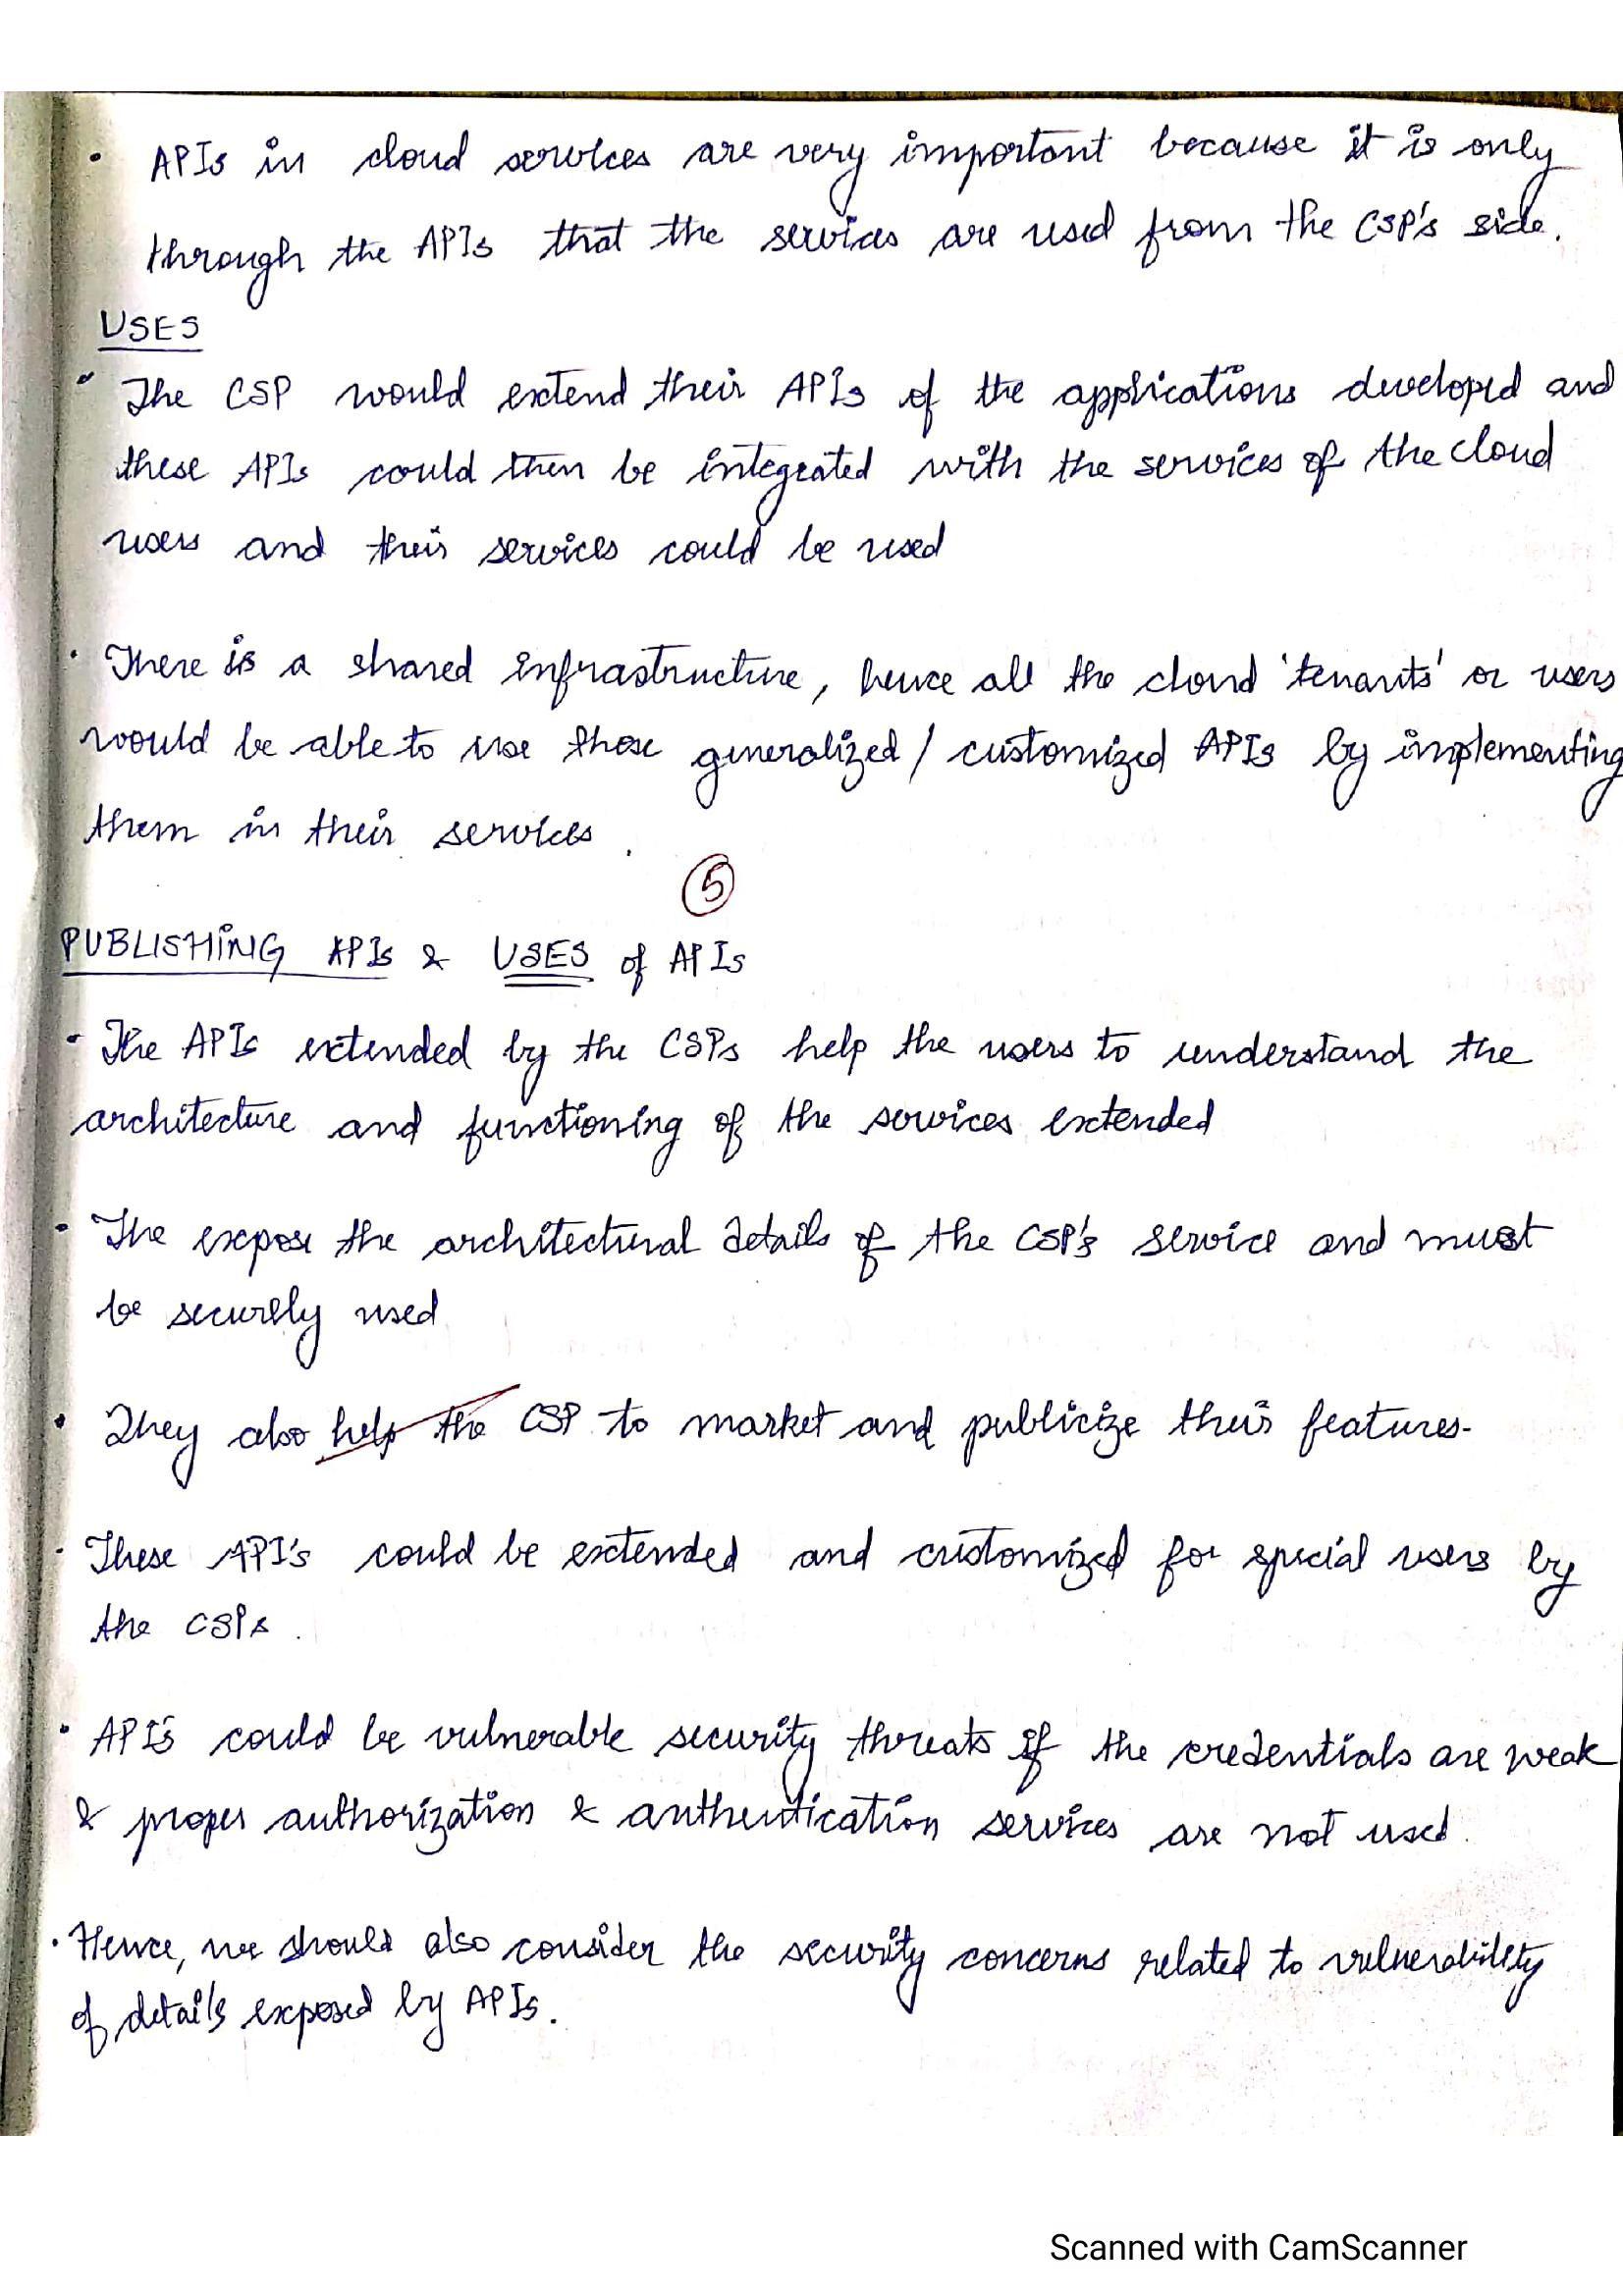 • APIs in cloud services are very important because it is only
through the APIs that the services are used from the CSP's side.
USES
• The CSP would extend their APIs of the applications developed and
these APIs could then be integrated with the services of the cloud
users and their services could be used
• There is a shared infrastructure, hence all the cloud 'tenants' or users
would be able to use these generalized / customized APIs by implementing
them in their services.
5
PUBLISHING APIs & USES of APIs
• The APIs extended by the CSPs help the users to understand the
architecture and functioning of the services extended
• The expose the architectural details of the CSP's service and must
be securely used
• They also help the CSP to market and publicize their features.
• These API's could be extended and customized for special users by
the CSPs.
• API's could be vulnerable security threats if the credentials are weak
& proper authorization & authentication services are not used.
• Hence, we should also consider the security concerns related to vulnerability
of details exposed by APIs.
Scanned with CamScanner